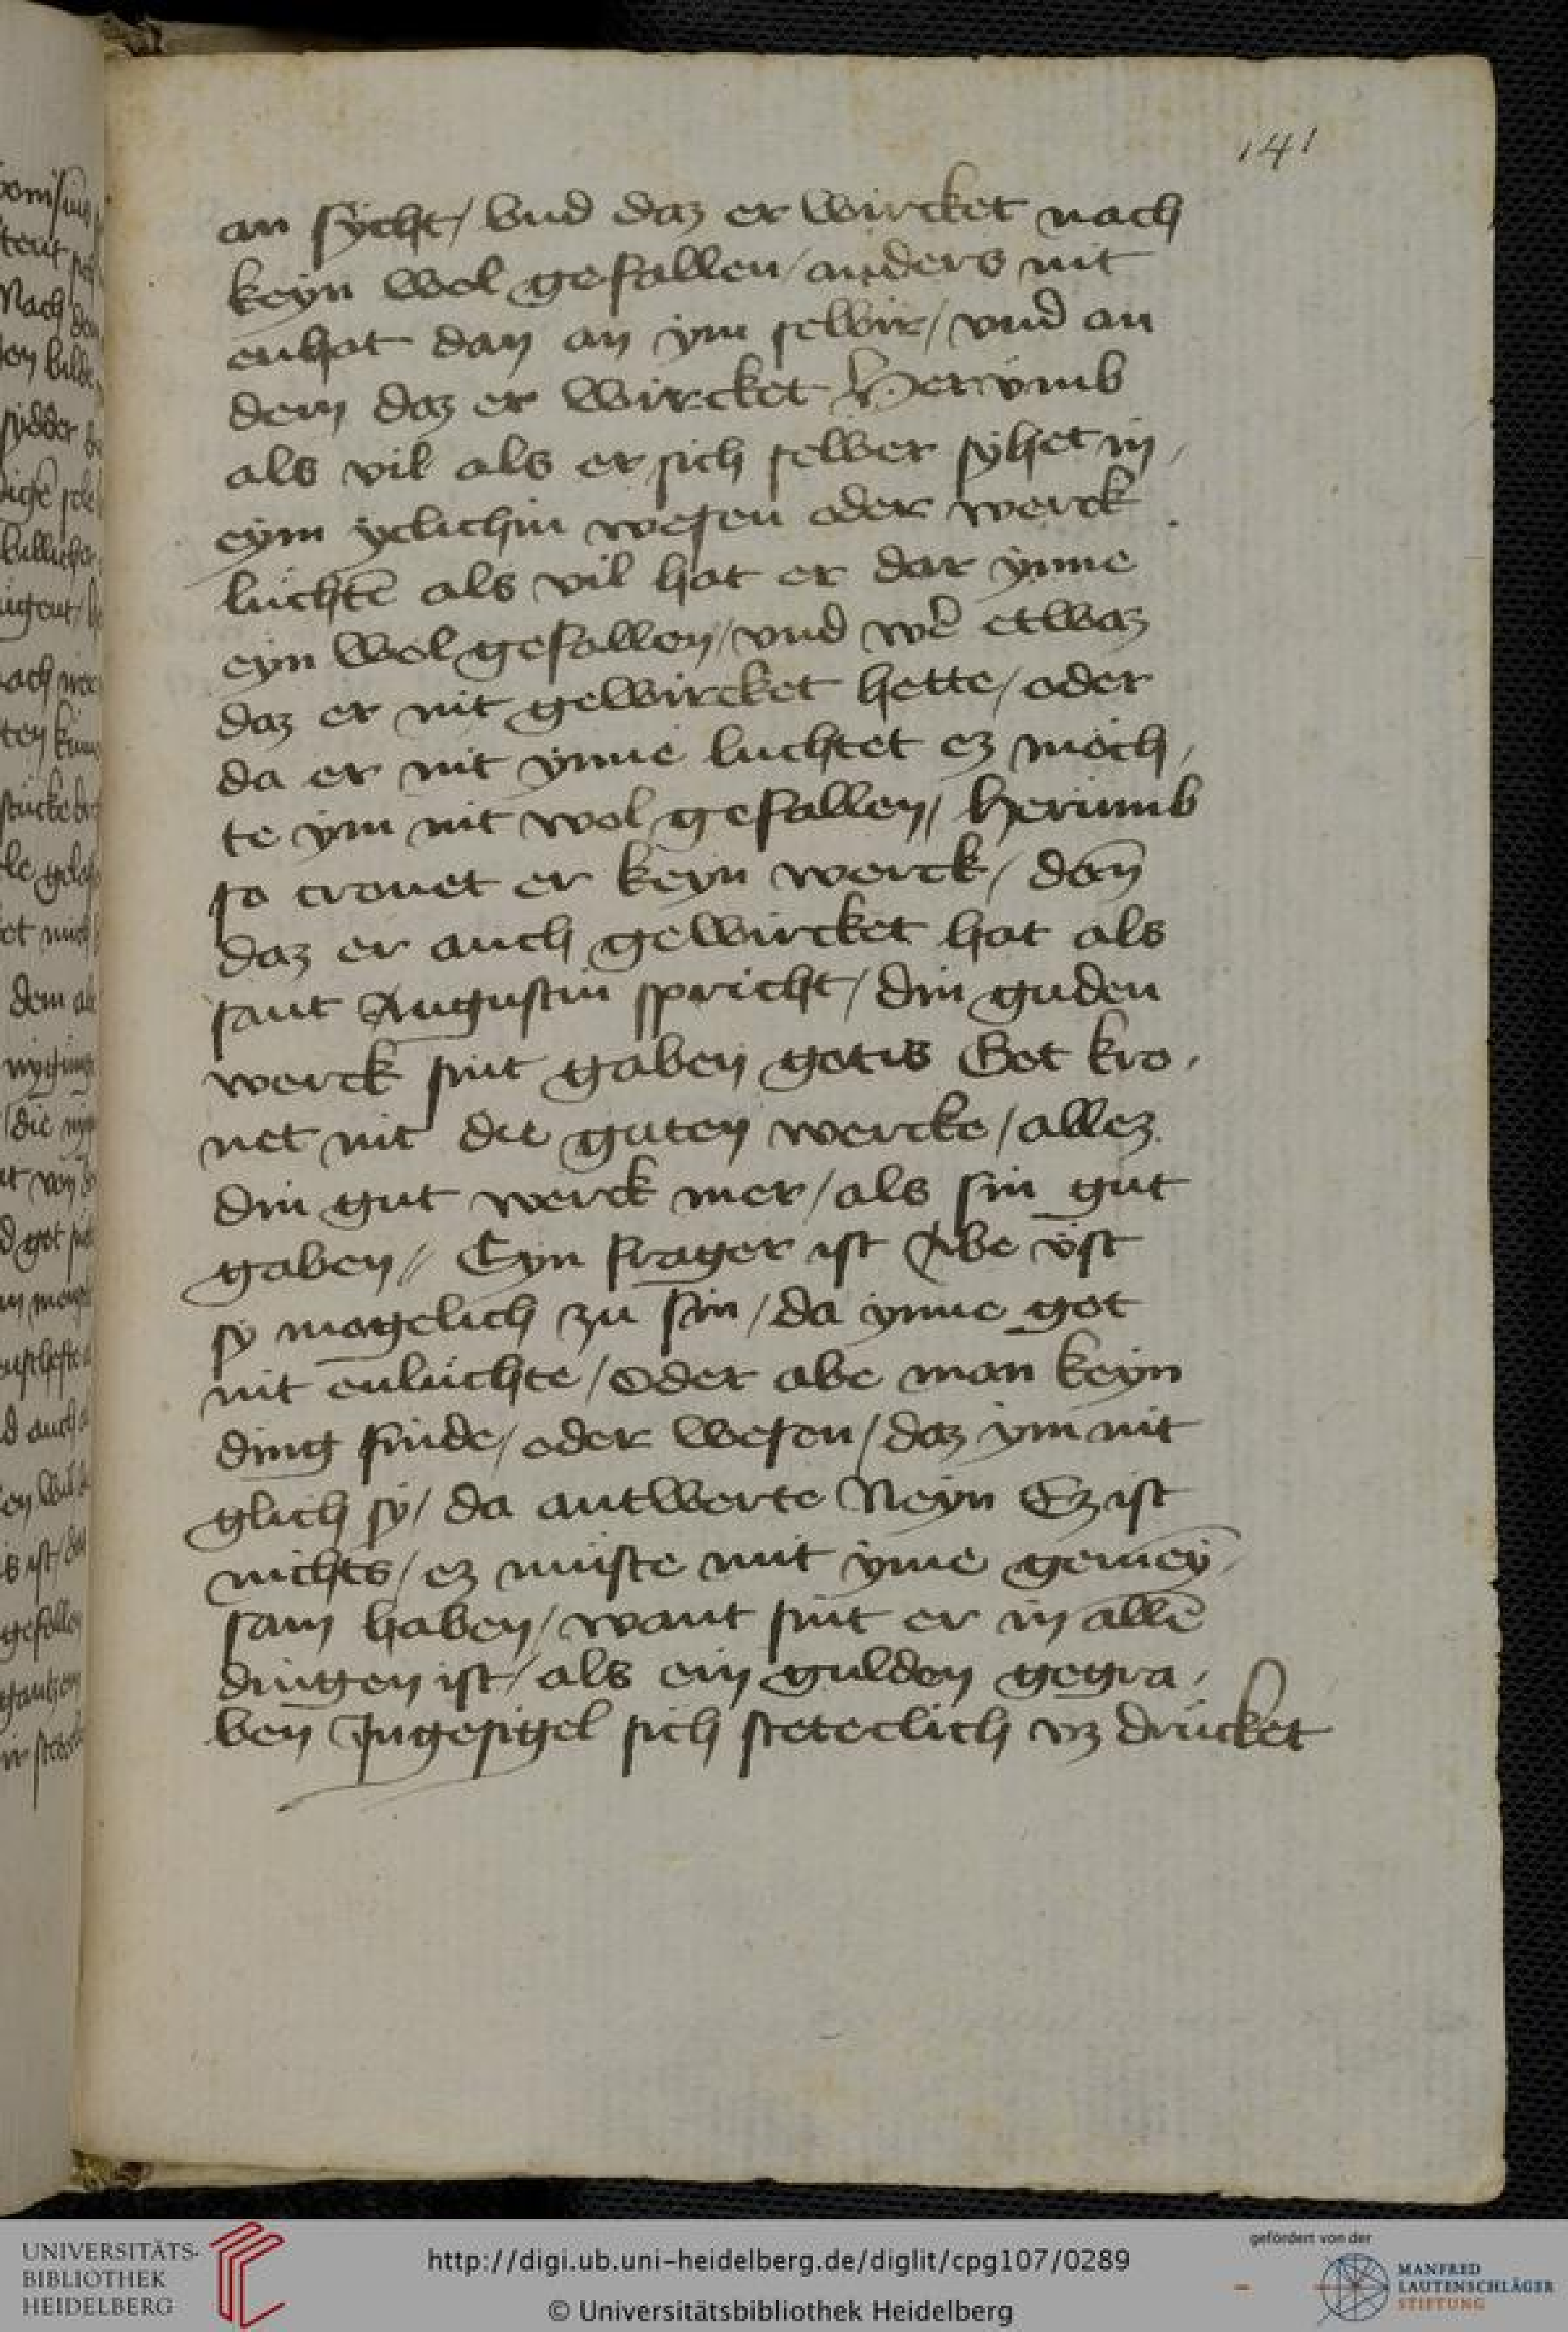 141
an sÿcht / vnd daz er wircket nach
keyn wol gefallen / anders nit
enhat dan an ÿm selbir / vnd an
dem daz er wircket Herrvmb
als vil als er sich selber sÿhet in /
eym yclichin wesen oder werck
lúchtē als vil hat er dar ÿnne
eyn wol gefallen / vnd wē etwaz
daz er nit gewircket hette / oder
da er nit ÿnne luchtet ez moch /
te ÿm nit wol gefallen / herumb
so cronet er keyn werck / dan̄
daz er auch gewircket hat als
sant Augustin spricht / din guden
werck sint gaben gotis Got kro /
net nit die guten wercke / allez
din gut werck mer / als sin gut
gaben // Eyn frager ist Abe ist
sy mogelich zu sin / da ynne got
nit enlúchte / oder abe man keyn
ding finde / oder wesen / daz ÿm nit
glich sÿ / da antwerte Neyn Ez ist
nichts / ez muiste mit ÿme gemeÿ /
sam haben / want sint er in allē
dingen ist / als ein gulden gegra /
ben Jngesigel sich steteclich vz drúcket
UNIVERSITÄTS-
BIBLIOTHEK
HEIDELBERG
http://digi.ub.uni-heidelberg.de/diglit/cpg107/0289
© Universitätsbibliothek Heidelberg
gefördert von der
MANFRED
LAUTENSCHLÄGER
STIFTUNG